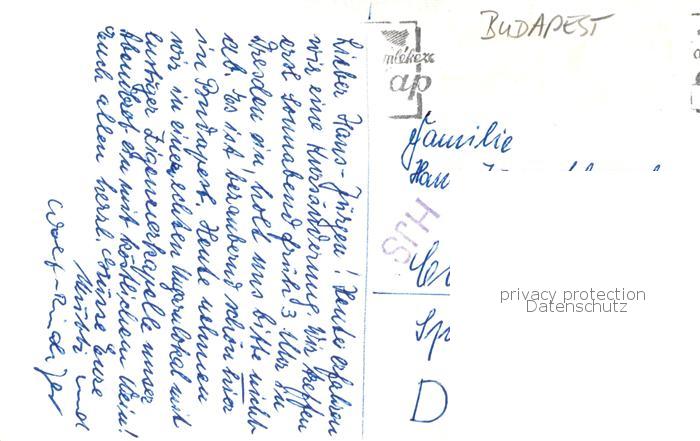 Lieber Hans-Jürgen! Heute erfahren
wir eine Kursänderung. Wir treffen
erst Sonnabend früh 3 Uhr in
Dresden ein, holt uns bitte nicht
ab. Es ist bezaubernd schön hier
in Budapest. Heute nehmen
wir in einer echten Ungarlokal mit
lustiger Zigeunerkapelle unser
Abendbrot ein mit köstlichem Wein!
Euch allen herzl. Grüsse Eure
Mutti und
Wolf-Rüdiger
BUDAPEST
ap
Familie
Han
SRH
Sp
D
privacy protection
Datenschutz